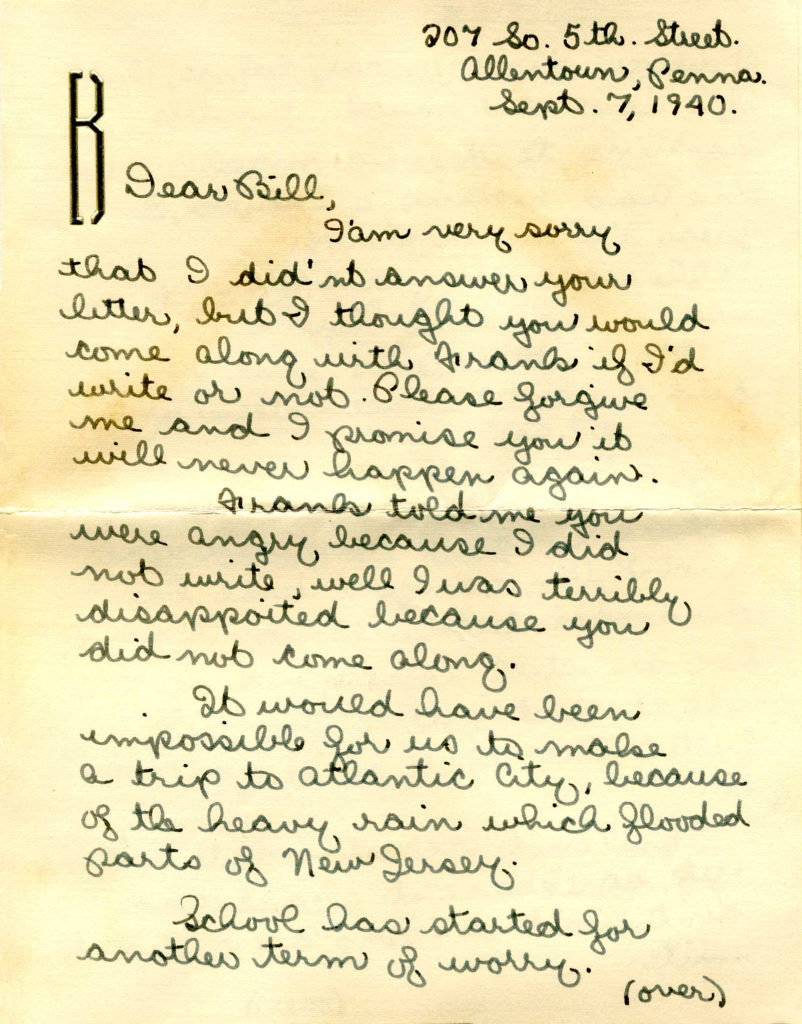 207 So. 5th. Street.
Allentown, Penna.
Sept. 7, 1940.
R
Dear Bill,
I'am very sorry
that I did'nt answer your
letter, but I thought you would
come along with Frank if I'd
write or not. Please forgive
me and I promise you it
will never happen again.
Frank told me you
were angry, because I did
not write, well I was terribly
disappoited because you
did not come along.
It would have been
impossible for us to make
a trip to Atlantic City, because
of the heavy rain which flooded
parts of New Jersey.
School has started for
another term of worry.
(over)